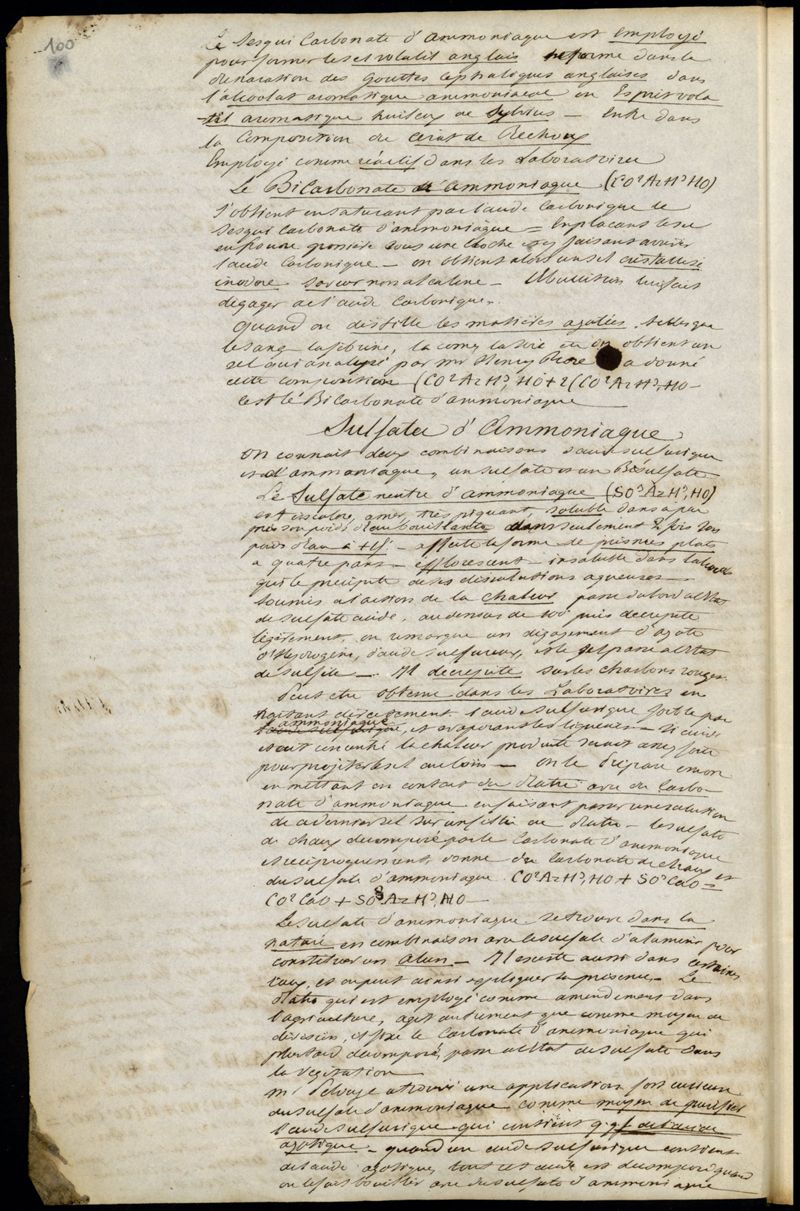 100
Le Sesqui Carbonate d'ammoniaque est Employé
pour former le sel volatil anglais dans la
des gouttes cephaliques anglaises dans
l'alcoolat aromatique ammoniacal ou Esprit vola
til aromatique huileux de Sylvius — Entre dans
la Composition du Cerat de Rechoux
Employé comme réactif dans les Laboratoires
Le BiCarbonate d'ammoniaque (CO² AzH³ HO)
S'obtient en saturant par l'acide Carbonique le
Sesqui Carbonate d'ammoniaque = En plaçant le sel
en poudre grossière sous une cloche et y faisant arriver
l'acide Carbonique — on obtient alors un sel cristallisé
inodore saveur non alcaline — l'Ebullition lui fait
dégager de l'acide Carbonique.
Quand on distille les matières azotées telles que
le sang la fibrine, la corne la soie on obtient un
sel qui analysé par mr Henry Rose a donné
cette composition (CO² AzH³, HO + 2(CO² AzH³, HO —
c'est le BiCarbonate d'ammoniaque
Sulfates d'Ammoniaque
on connait deux combinaisons d'acide sulfurique
et d'ammoniaque, un sulfate et un BiSulfate
Le Sulfate neutre d'ammoniaque (SO³ AzH³, HO)
est incolore, amer, très piquant, soluble dans à peu
près son poids d'eau bouillante dans seulement 2 fois son
poids d'eau à +15° — affecte la forme de prismes plats
a quatre pans — efflorescent — insoluble dans l'alcool
qui le précipite de ses dissolutions aqueuses —
Soumis a l'action de la chaleur passe d'abord a l'Etat
de sulfate acide, au dessus de 100° puis décrépite
légèrement, on remarque un dégagement d'azote
d'Hydrogène, d'acide sulfureux, et le sel passe a l'Etat
de sulfite —. Il decrepite sur les charbons rouges.
Peut etre obtenu dans les Laboratoires en
traitant directement l'acide sulfurique faible par
l'ammoniaque et evaporant les liqueurs — Si l'acide
etait concentré la chaleur produite serait assez forte
pour projeter le sel au loin — on le Prépare encore
en mettant en contact du Platre avec du Carbo-
nate d'ammoniaque en faisant passer une solution
de ce dernier sel sur un filtre de Platre — le sulfate
de chaux decomposé par le Carbonate d'ammoniaque
et réciproquement, donne du Carbonate de chaux et
du sulfate d'ammoniaque CO² AzH³, HO + SO³ CaO =
CO² CaO + SO³ AzH³, HO —
Le sulfate d'ammoniaque se trouve dans la
nature en combinaison avec le sulfate d'alumine pour
constituer un alun — Il existe aussi dans certaines
eaux, et on peut ainsi expliquer sa présence. Le
Platre qui est employé comme amendement dans
l'agriculture, agit autrement que comme moyen de
division, il fixe le Carbonate d'ammoniaque qui
plus tard decomposé, passe a l'Etat de sulfate dans
la vegetation
mr Pelouze a trouvé une application fort curieuse
du sulfate d'ammoniaque comme moyen de purifier
l'acide sulfurique qui contient q.q.f. de l'acide
azotique — quand un acide sulfurique contient
de l'acide azotique, tout cet acide est decomposé quand
on le fait bouillir avec du sulfate d'ammoniaque